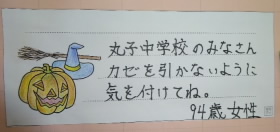 丸子中学校のみなさん
カゼを引かないように
気を付けてね。
94歳女性